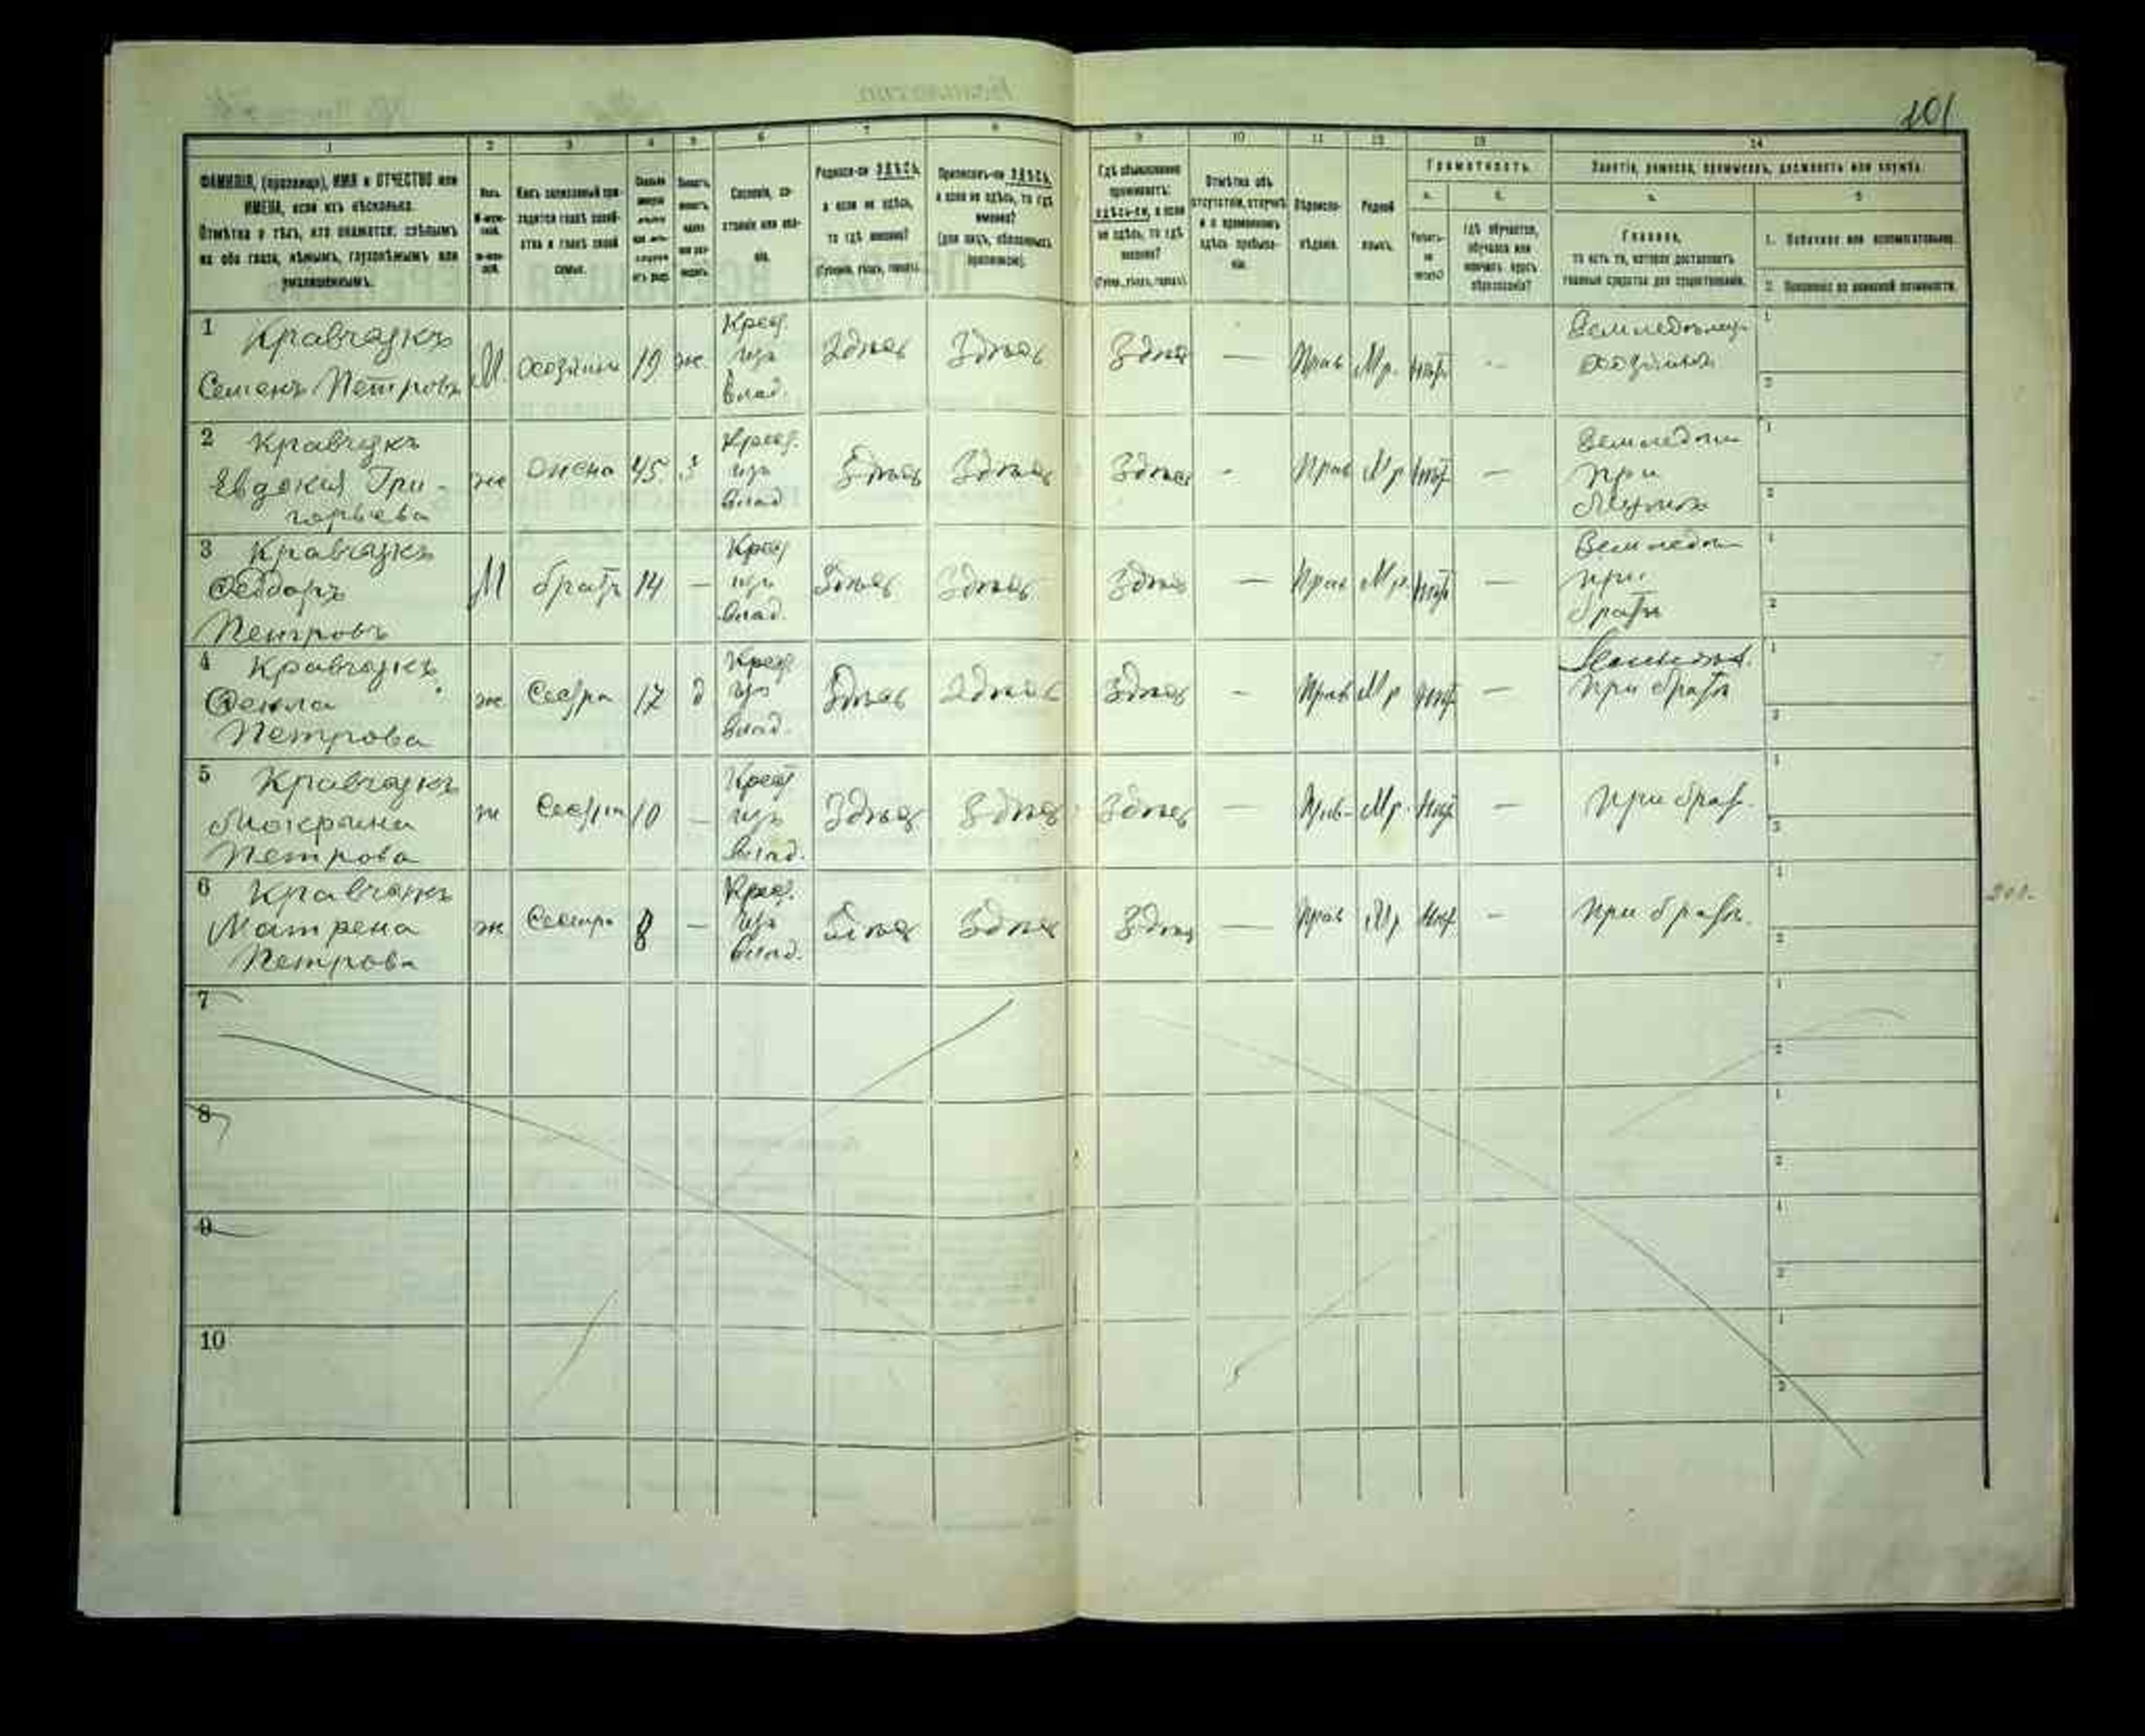 101
1 2 3 4 5 6 7 8 9 10 11 12 13 14
ФАМИЛІЯ, (прозвище), ИМЯ и ОТЧЕСТВО или
ИМЕНА, если ихъ нѣсколько.
Отмѣтка о тѣхъ, кто окажется: слѣпымъ
на оба глаза, нѣмымъ, глухонѣмымъ или
умалишеннымъ.
Полъ.
Какъ записанный при-
ходится главѣ хозяй-
ства и главѣ своей
семьи.
Сословіе, со-
стояніе или зва-
ніе.
Родился-ли ЗДѢСЬ,
а если не здѣсь,
то гдѣ именно?
(Губернія, уѣздъ, городъ).
Приписанъ-ли ЗДѢСЬ,
а если не здѣсь, то гдѣ
именно?
(для лицъ, обязанныхъ
припиской).
Гдѣ обыкновенно
проживаетъ:
здѣсь-ли, а если
не здѣсь, то гдѣ
именно?
(Губер., уѣздъ, городъ).
Отмѣтка объ
отсутствіи, отлучкѣ
и о временномъ
здѣсь пребыва-
ніи.
Вѣроиспо-
вѣданіе.
Родной
языкъ.
Грамотность.
а. б.
Умѣетъ-
ли
читать?
Гдѣ обучается,
обучался или
кончилъ курсъ
образованія?
Занятіе, ремесло, промыселъ, должность или служба.
а. б.
Главное,
то есть то, которое доставляетъ
главныя средства для существованія.
1. Побочное или вспомогательное.
2. Положеніе по воинской повинности.
1 Кравчукъ
Семенъ Петровъ М. хозяинъ 19 ж. Крест. изъ влад. Здѣсь Здѣсь Здѣсь — Прав Мр. нѣтъ - Земледѣлец. хозяинъ
2 Кравчукъ
Евдокия Гри-
горьева ж 45 Крест. изъ влад. Здѣсь Здѣсь Здѣсь - Прав Мр нѣтъ — Земледѣл при
3 Кравчукъ
Феодоръ
Петровъ М братъ 14 — Крест изъ влад. Здѣсь Здѣсь Здѣсь — Прав Мр. нѣтъ — Земледѣл при братѣ
4 Кравчукъ
Фекла
Петрова ж Сестра 17 д Крест изъ влад. Здѣсь Здѣсь Здѣсь — Прав Мр нѣтъ — при братѣ
5 Кравчукъ
Мокрина
Петрова ж Сестра 10 — Крест изъ влад. Здѣсь Здѣсь Здѣсь — Прав- Мр. нѣтъ — при брат.
6 Кравчукъ
Матрена
Петрова ж Сестра 8 — Крест. изъ влад. Здѣсь Здѣсь Здѣсь — Прав Мр нѣт. — при братѣ.
7
8
9
10